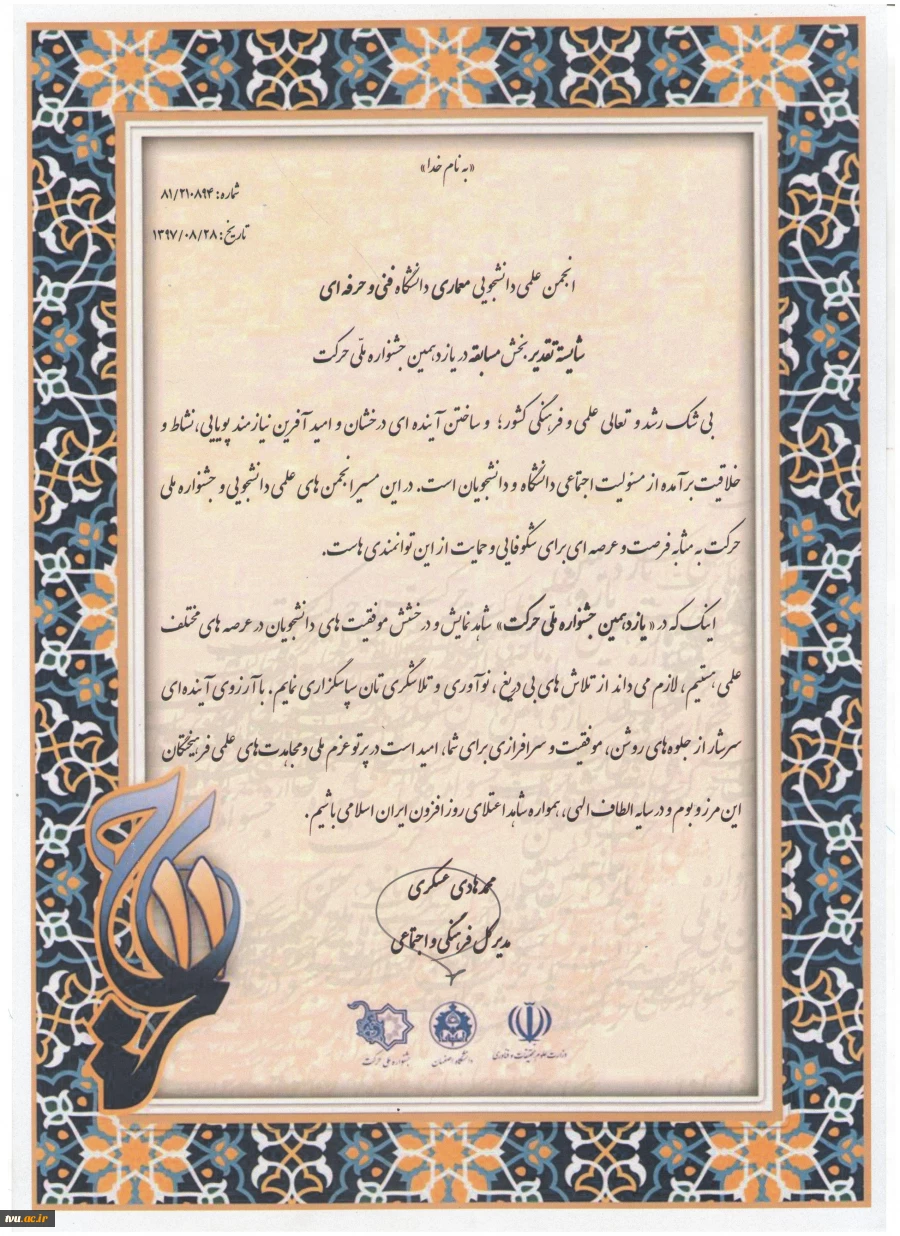 «به نام خدا»
شماره: ۸۱/۲۱۰۸۹۴
تاریخ: ۱۳۹۷/۰۸/۲۸
انجمن علمی دانشجویی معماری دانشگاه فنی و حرفه ای
شایسته تقدیر بخش مسابقه در یازدهمین جشنواره ملّی حرکت
بی شک رشد و تعالی علمی و فرهنگی کشور؛ و ساختن آینده ای درخشان و امید آفرین نیازمند پویایی، نشاط و
خلاقیت برآمده از مسئولیت اجتماعی دانشگاه و دانشجویان است. در این مسیر انجمن های علمی دانشجویی و جشنواره ملی
حرکت به مثابه فرصت و عرصه ای برای شکوفایی و حمایت از این توانمندی هاست.
اینک که در «یازدهمین جشنواره ملّی حرکت» شاهد نمایش و درخشش موفقیت های دانشجویان در عرصه های مختلف
علمی هستیم، لازم می داند از تلاش های بی دریغ، نوآوری و تلاشگری تان سپاسگزاری نمایم. با آرزوی آینده ای
سرشار از جلوه های روشن، موفقیت و سرافرازی برای شما، امید است در پرتو عزم ملی و مجاهدت های علمی فرهیختگان
این مرز و بوم و در سایه الطاف الهی، همواره شاهد اعتلای روز افزون ایران اسلامی باشیم.
محمدهادی عسکری
مدیر کل فرهنگی و اجتماعی
وزارت علوم تحقیقات و فناوری
دانشگاه اصفهان
جشنواره ملی حرکت
۱۱
حرکت
tvu.ac.ir